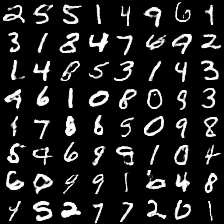 2 5 5 1 4 9 6 1
3 1 8 4 7 6 9 2
1 4 8 5 3 1 4 3
9 6 1 0 8 0 9 3
1 7 8 6 5 0 9 8
5 9 6 9 9 1 0 4
6 0 9 9 1 6 4 8
4 5 2 7 7 2 0 1